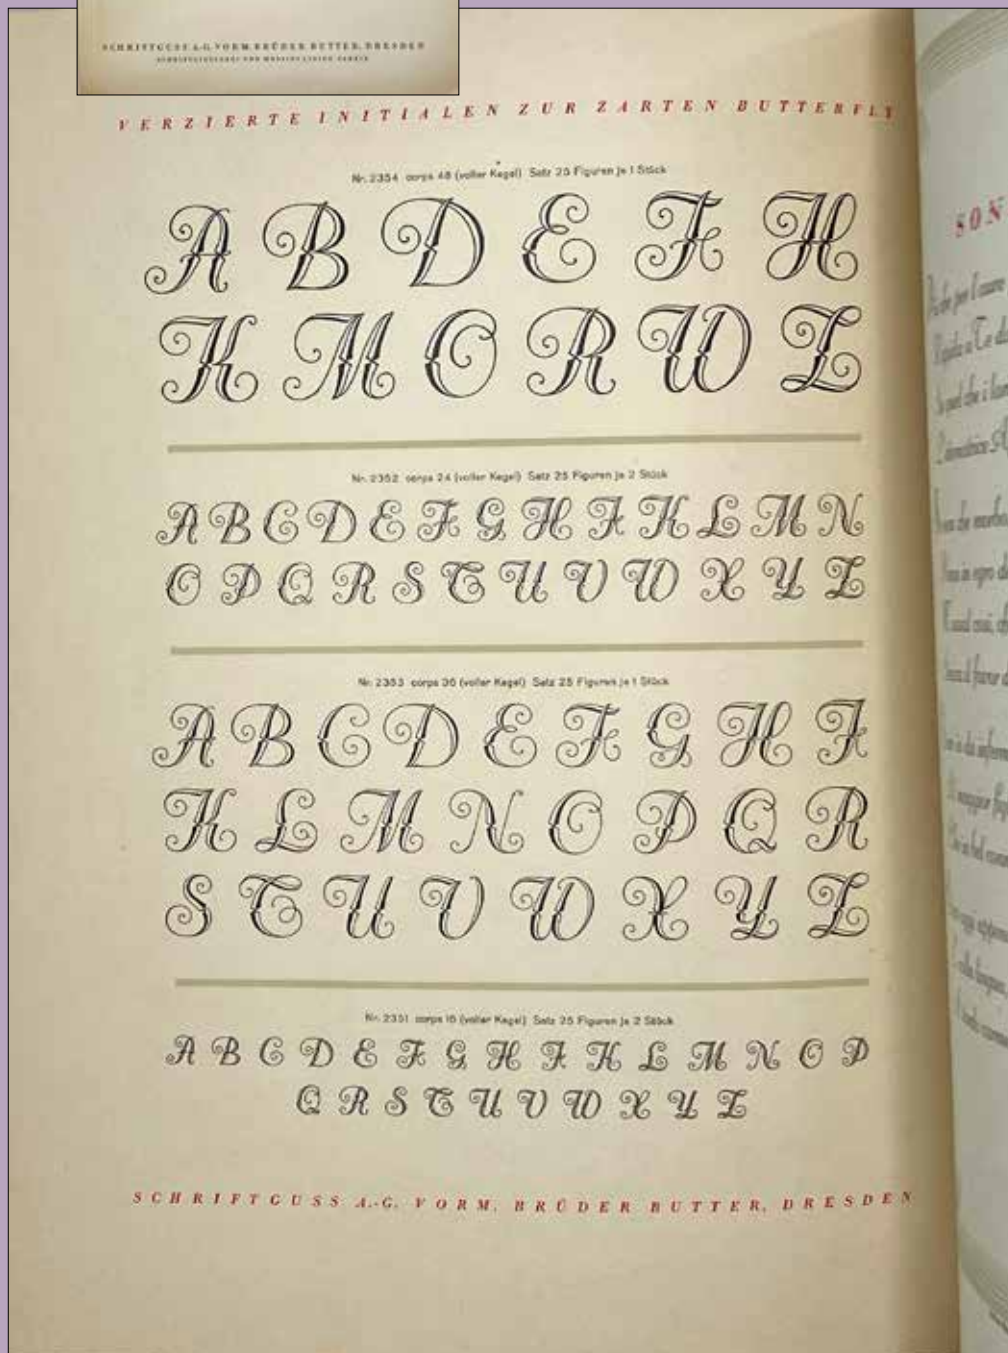 SCHRIFTGUSS A.-G. VORM. BRÜDER BUTTER, DRESDEN
VERZIERTE INITIALEN ZUR ZARTEN BUTTERFLY
Nr. 2354 corps 48 (voller Kegel) Satz 25 Figuren je 1 Stück
A B D E F H
K M O R W Z
Nr. 2352 corps 24 (voller Kegel) Satz 25 Figuren je 2 Stück
A B C D E F G H J K L M N
O P Q R S T U V W X Y Z
Nr. 2353 corps 36 (voller Kegel) Satz 25 Figuren je 1 Stück
A B C D E F G H J
K L M N O P Q R
S T U V W X Y Z
Nr. 2351 corps 16 (voller Kegel) Satz 25 Figuren je 2 Stück
A B C D E F G H J K L M N O P
Q R S T U V W X Y Z
SCHRIFTGUSS A.-G. VORM. BRÜDER BUTTER, DRESDEN
SON